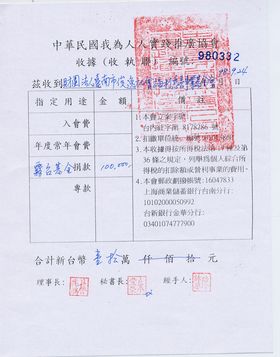 中華民國我為人人實踐推廣協會
收據(收執聯) 編號:
980332
98.9.24
茲收到財團法人臺南市
指定用途 金額 備註
入會費
年度常年會費
霧台基金捐款 100,000
專款
1.本會立案字號:
台內社字第 8178286 號
2.扣繳單位統一編號
3.本收據得按所得稅法第17條及第
36條之規定,列舉為個人綜合所
得稅的扣除額或營利事業的費用。
4.本會郵政劃撥帳號:16047833
上海商業儲蓄銀行台南分行:
10102000050992
台新銀行金華分行:
03401074777900
合計新台幣 壹拾萬 仟佰拾元
理事長: 秘書長: 經手人: